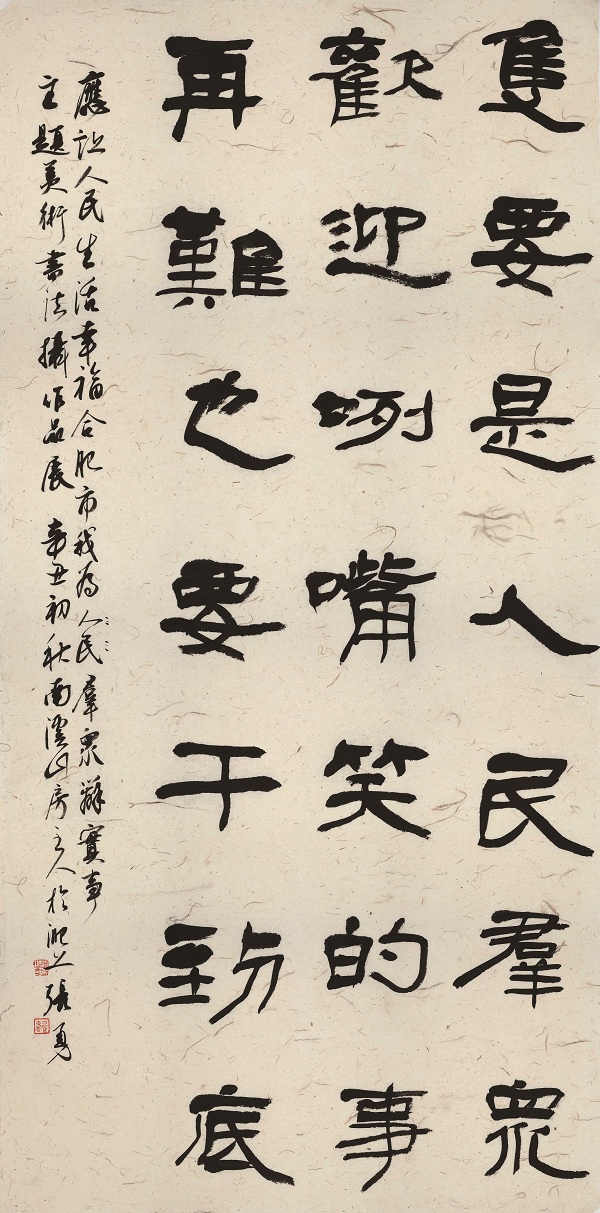 隻要是人民羣衆
歡迎咧嘴笑的事
再難也要干到底
應訟人民生活幸福合肥市我為人民羣衆辦實事
主題美術書法攝作品展 辛丑初秋南溪山房主人於淝上張勇